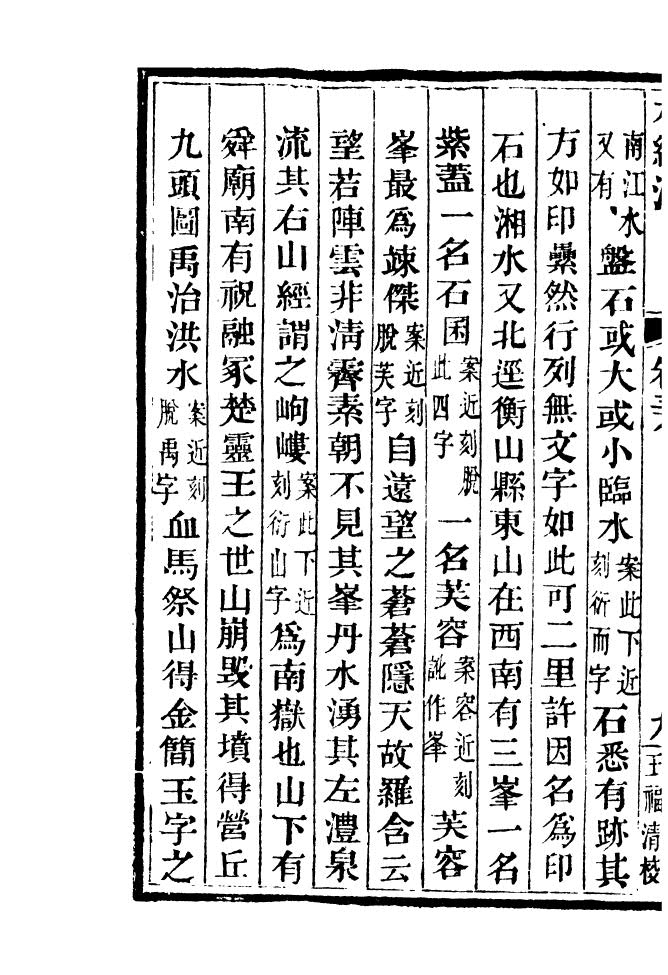 南江水又有盤石或大或小臨水案此下近刻衍而字石悉有跡其
方如印纍然行列無文字如此可二里許因名爲印
石也湘水又北逕衡山縣東山在西南有三峯一名
紫蓋一名石囷案近刻脫此四字一名芙容案容近刻訛作峯芙容
峯最爲竦傑案近刻脫芙字自遠望之蒼蒼隱天故羅含云
望若陣雲非淸霽素朝不見其峯丹水湧其左澧泉
流其右山經謂之岣嶁案此下近刻衍山字爲南嶽也山下有
舜廟南有祝融冢楚靈王之世山崩毀其墳得營丘
九頭圖禹治洪水案近刻脫禹字血馬祭山得金簡玉字之